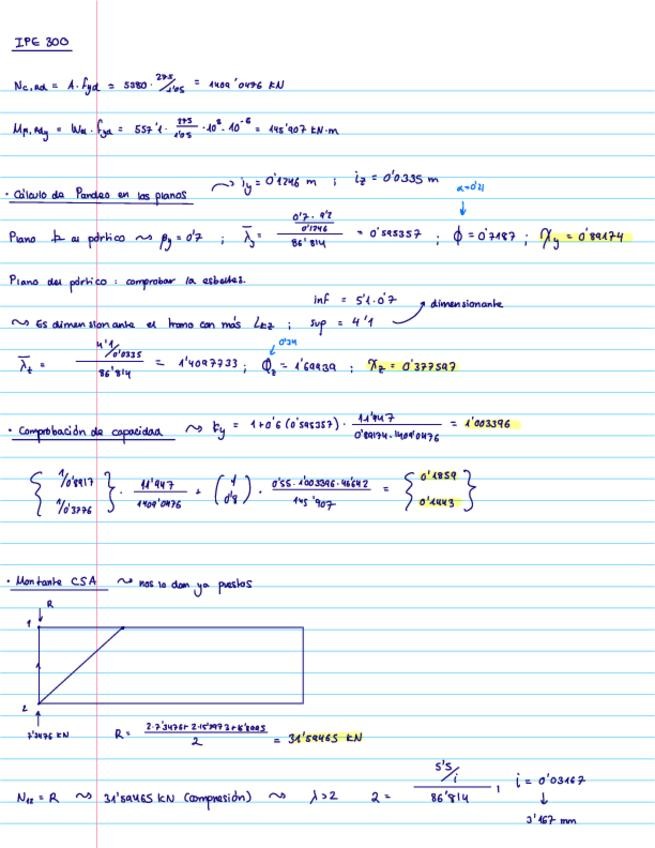 IPE 300
Nc,Rd = A · fyd = 5380 · 275/1'05 = 1409'0476 kN
Mpl,Rdy = Wpl · fyd = 557'1 · 275/1'05 · 10³ · 10⁻⁶ = 145'907 kN·m
· Cálculo de Pandeo en los planos ⤳ iy = 0'1246 m ; iz = 0'0335 m
α=0'21
Plano ⊥ al pórtico ⤳ βy = 0'7 ; λ̄y = (0'7 · 9'2 / 0'1246) / 86'814 = 0'595357 ; ϕ = 0'7187 ; χy = 0'89174
Plano del pórtico : comprobar la esbeltez.
⤳ Es dimensionante el tramo con más LKZ ; inf = 5'1 · 0'7
sup = 4'1 dimensionante
0'34
λ̄z = (4'1 / 0'0335) / 86'814 = 1'4097733 ; ϕz = 1'69939 ; χz = 0'377597
· Comprobación de capacidad ⤳ ky = 1+0'6 (0'595357) · 11'947 / 0'89174 · 1409'0476 = 1'003396
{ 1/0'8917 1/0'3776 } · 11'947 / 1409'0476 + ( 1 0'8 ) · 0'55 · 1'003396 · 46'642 / 145'907 = { 0'1859 0'1443 }
· Montante CSA ⤳ nos lo dan ya puestos
R
1
2
7'3476 kN
R = / 2 = 31'59465 kN
N12 = R ⤳ 31'59465 kN (compresión) ⤳ λ>2 2 = (5'5 / i) / 86'814 , i = 0'03167
3'167 mm